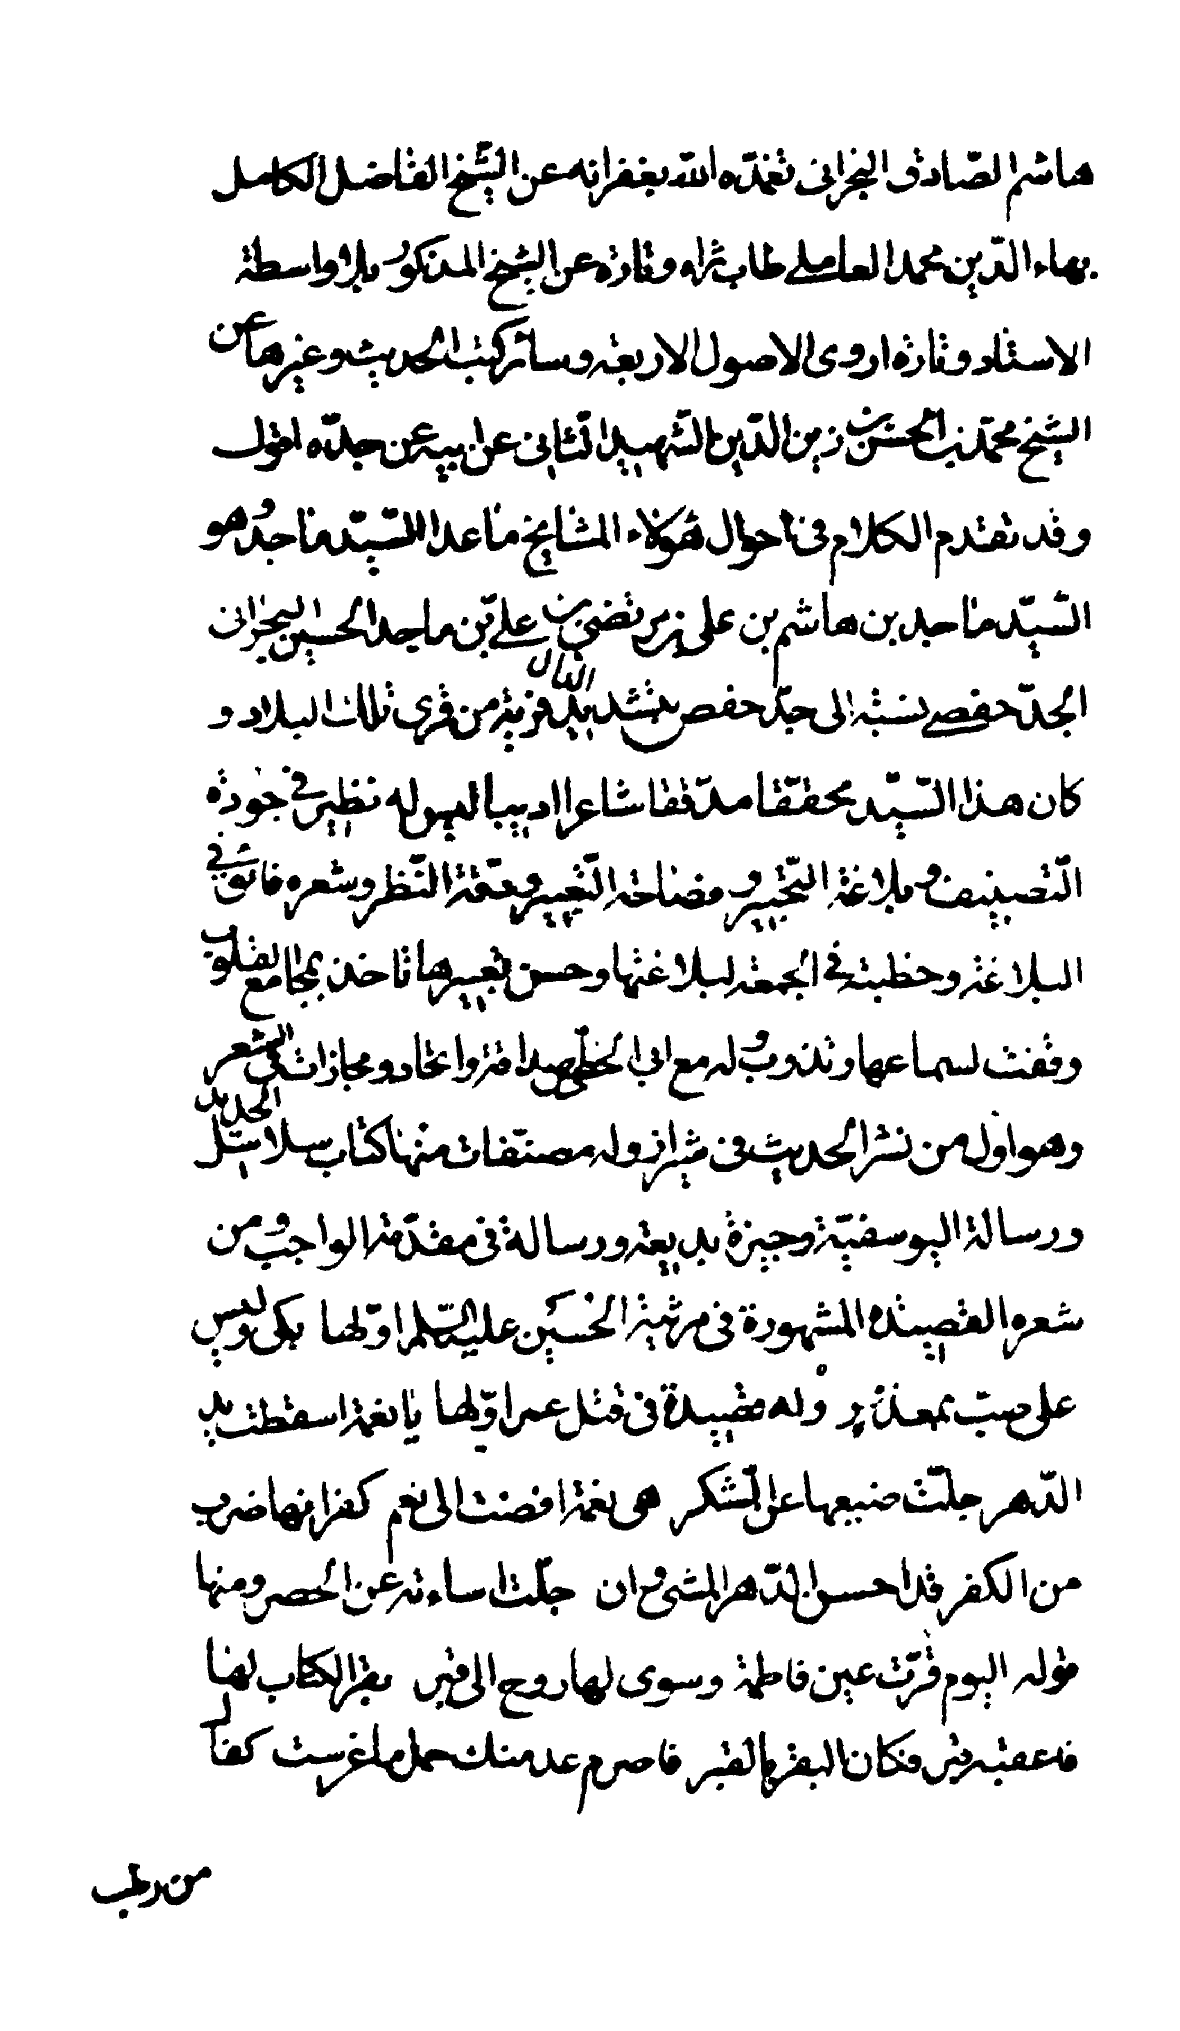 هاشم الصّادقى البحرانى تغمّده اللّه بغفرانه عن الشّيخ الفاضل الكامل
بهاء الدّين محمد العاملى طاب ثراه وتارة عن الشّيخ المذكور بلا واسطة
الاستاد وتارة اروى الاصول الاربعة وسائر كتب الحديث وغيرها عن
الشيخ محمّد بن الحسن بن زين الدّين الشّهيد الثّانى عن ابيه عن جدّه اقول
وقد تقدم الكلام فى احوال هؤلاء المشايخ ما عدا السّيّد ماجد وهو
السّيّد ماجد بن هاشم بن على بن مرتضى بن على بن ماجد الحسينى البحرانى
الجدّ حفصى نسبة الى جدّ حفص بتشديد الدال قرية من قرى تلك البلاد و
كان هذا السّيّد محققا مدقّقا شاعرا اديبا ليس له نظير فى جودة
التّصنيف وبلاغة التّحبير وفصاحة التّعبير ودقّة النّظر وشعره فائق فى
البلاغة وخطبته فى الجمعة لبلاغتها وحسن تعبيرها تاخذ بمجامع القلوب
وقفت لسماعها وتذوب وله مع ابى اتحاد ومجازات فى الشعر
وهو اوّل من نشر الحديث فى شيراز وله مصنّفات منها كتاب سلاسل الحديد
ورسالة اليوسفيّة وجيزة بديعة ورسالة فى مقدّمة الواجب ومن
شعره القصيدة المشهورة فى مرثية الحسين عليه السّلم اوّلها بكى وليس
على صبّ بمعذور وله قصيدة فى قتل عمر اوّلها يا نعمة اسقطت يد
الدّهر جلّت صنيعها عن الشكر هى نعمة افضت الى نعم كفرانها ضرب
من الكفر قد احسن الدّهر المسئ وان جلّت اساءته عن الحصر ومنها
قوله اليوم قرّت عين فاطمة وسوى لها روح الى قبر بقر الكتاب لها
فاعقبه بقر فكان البقر بالبقر فاصرم عدمتك حمل ما غرست كفا لك
من رطب